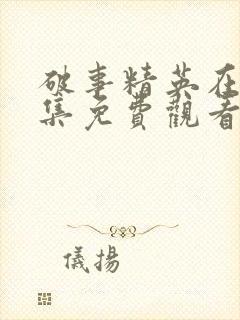 破事精英在
集免費觀看
儀揚